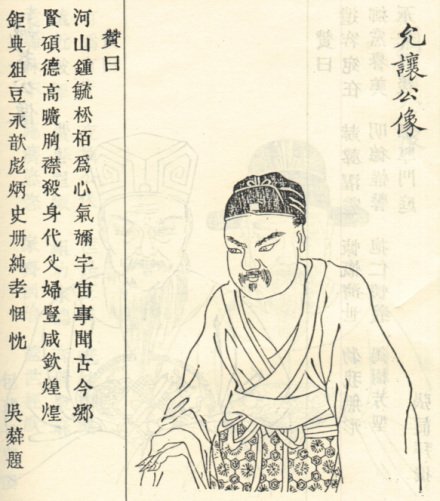 允讓公像
贊曰
河山鍾毓松栢爲心氣彌宇宙事聞古今鄉
賢碩德高曠胸襟殺身代父婦豎咸欽煌煌
鉅典俎豆永歆彪炳史册純孝悃忱 吳 題